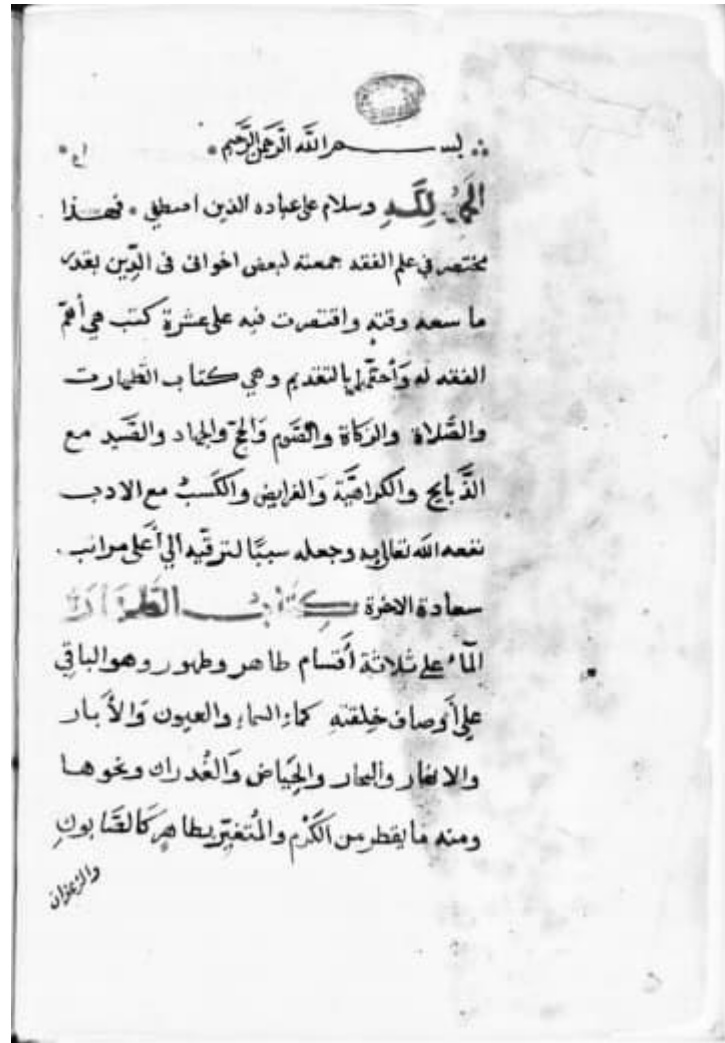 بسم الله الرحمن الرحيم
الحمد لله وسلام على عباده الذين اصطفى فهذا
مختصر في علم الفقه جمعته لبعض اخواني في الدِّين بقدر
ما سعه وقته واقتصرت فيه على عشرة كتب هي أهمّ
الفقه له وَأحقّها بالتقديم وهي كتاب الطهارت
والصَّلاة والزكاة والصَّوم وَالحجّ والجهاد والصَّيد مع
الذَّبايح والكراهيَّة وَالفرايض والكَسبُ مع الادب
نفعه الله تعالى به وجعله سببًا لترقّيه الي أعلى مراتب
سعادة الاخرة كتاب الطهارة
المآء على ثلاثة أقسام طاهر وطهور وهو الباقي
على أوصاف خِلقتهِ كماء السماء والعيون وَالأبار
والانهار والبحار والحِيَاض وَالغُدران ونحوها
ومنه ما يقطر من الكَرْم والمُتغيِّر بطاهرٍ كَالصَّابونِ
والزعفران